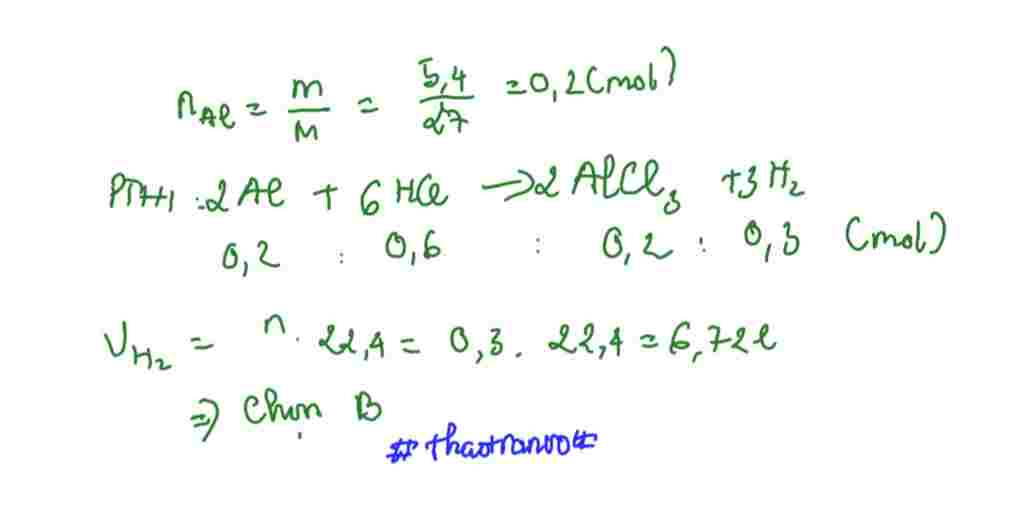 n_Al = m/M = 5,4/27 = 0,2 (mol)
PTHH: 2Al + 6HCl → 2AlCl₃ + 3H₂
0,2 : 0,6 : 0,2 : 0,3 (mol)
V_H₂ = n. 22,4 = 0,3. 22,4 = 6,72l
⇒ Chọn B
#thaotranvo#